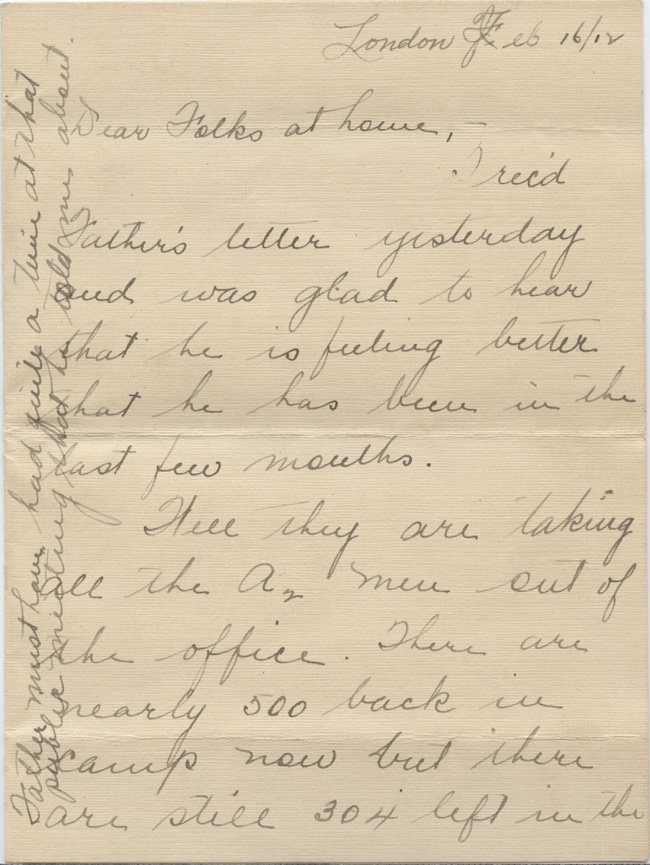 London Feb 16/12
Dear Folks at home, -
I rec'd
Father's letter yesterday
and was glad to hear
that he is feeling better
that he has been in the
last few months.
Well they are taking
all the A2 men out of
the office. There are
nearly 500 back in
camp now but there
are still 304 left in the
Father must have had quite a time at that
public meeting that he told me about.